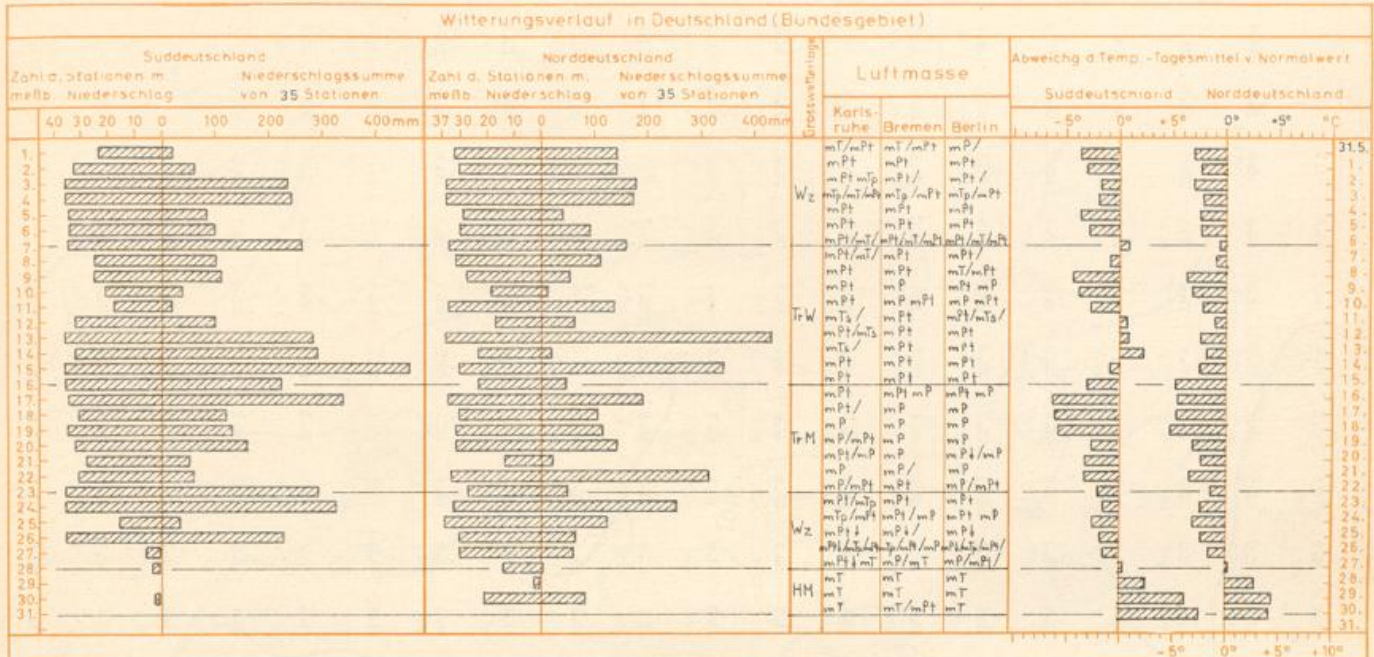 Witterungsverlauf in Deutschland (Bundesgebiet)
Süddeutschland
Zahl d. Stationen m. Niederschlagssumme
meßb. Niederschlag von 35 Stationen
40 30 20 10 0 100 200 300 400mm
Norddeutschland
Zahl d. Stationen m. Niederschlagssumme
meßb. Niederschlag. von 35 Stationen
37 30 20 10 0 100 200 300 400mm
Grosswetterlage
Luftmasse
Karls-
ruhe Bremen Berlin
Abweichg d Temp.-Tagesmittel v. Normalwert
Süddeutschland Norddeutschland.
-5° 0° +5° 0° +5° °C
31.5.
1. mT/mPt mT/mPt mP/
2. mPt mPt mPt 1.
3. mPt mTp mPt/ mPt/ 2.
4. mTp/mT/mPt mTp/mPt mTp/mPt 3.
Wz
5. mPt mPt mPt 4.
6. mPt mPt mPt 5.
7. mPt/mT/ mPt/mT/mPt mPt/mT/mPt 6.
8. mPt/mT/ mPt mPt/ 7.
9. mPt mPt mT/mPt 8.
10. mPt mP mPt mP 9.
11. mPt mP mPt mP mPt 10.
TrW
12. mTs/ mPt mPt/mTs/ 11.
13. mPt/mTs mPt mPt 12.
14. mTs/ mPt mPt 13.
15. mPt mPt mPt 14.
16. mPt mPt mPt 15.
17. mPt mPt mP mPt mP 16.
18. mPt/ mP mP 17.
19. mP mP mP 18.
TrM
20. mP/mPt mP mP 19.
21. mPt/mP mP mP↓/mP 20.
22. mP mP/ mP 21.
23. mP/mPt mPt mP/mPt 22.
24. mPt/mTp mPt mPt 23.
25. mTp/mPt mPt/mP mPt mP 24.
Wz
26. mPt↓ mP↓/ mP↓ 25.
27. mPt↓/mTp/mPt mTp/mPt/mP mP↓/mTp/mPt/ 26.
28. mPt↓mT mP/mT mP/mPt/ 27.
29. mT mT mT 28.
30. HM mT mT mT 29.
31. mT mT/mPt mT 30.
31.
-5° 0° +5° +10°